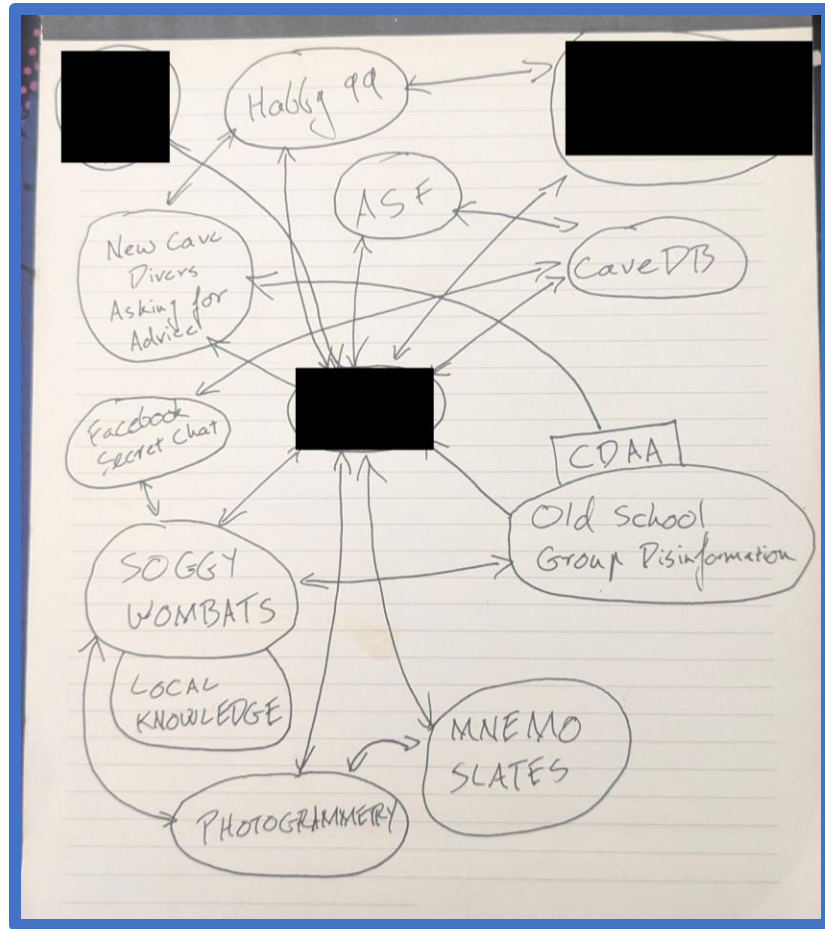 ASF
New Cave
Divers
Asking for
Advice
CaveDB
Facebook
Secret Chat
CDAA
Old School
Group Disinformation
SOGGY
WOMBATS
LOCAL
KNOWLEDGE
MNEMO
SLATES
PHOTOGRAMMETRY